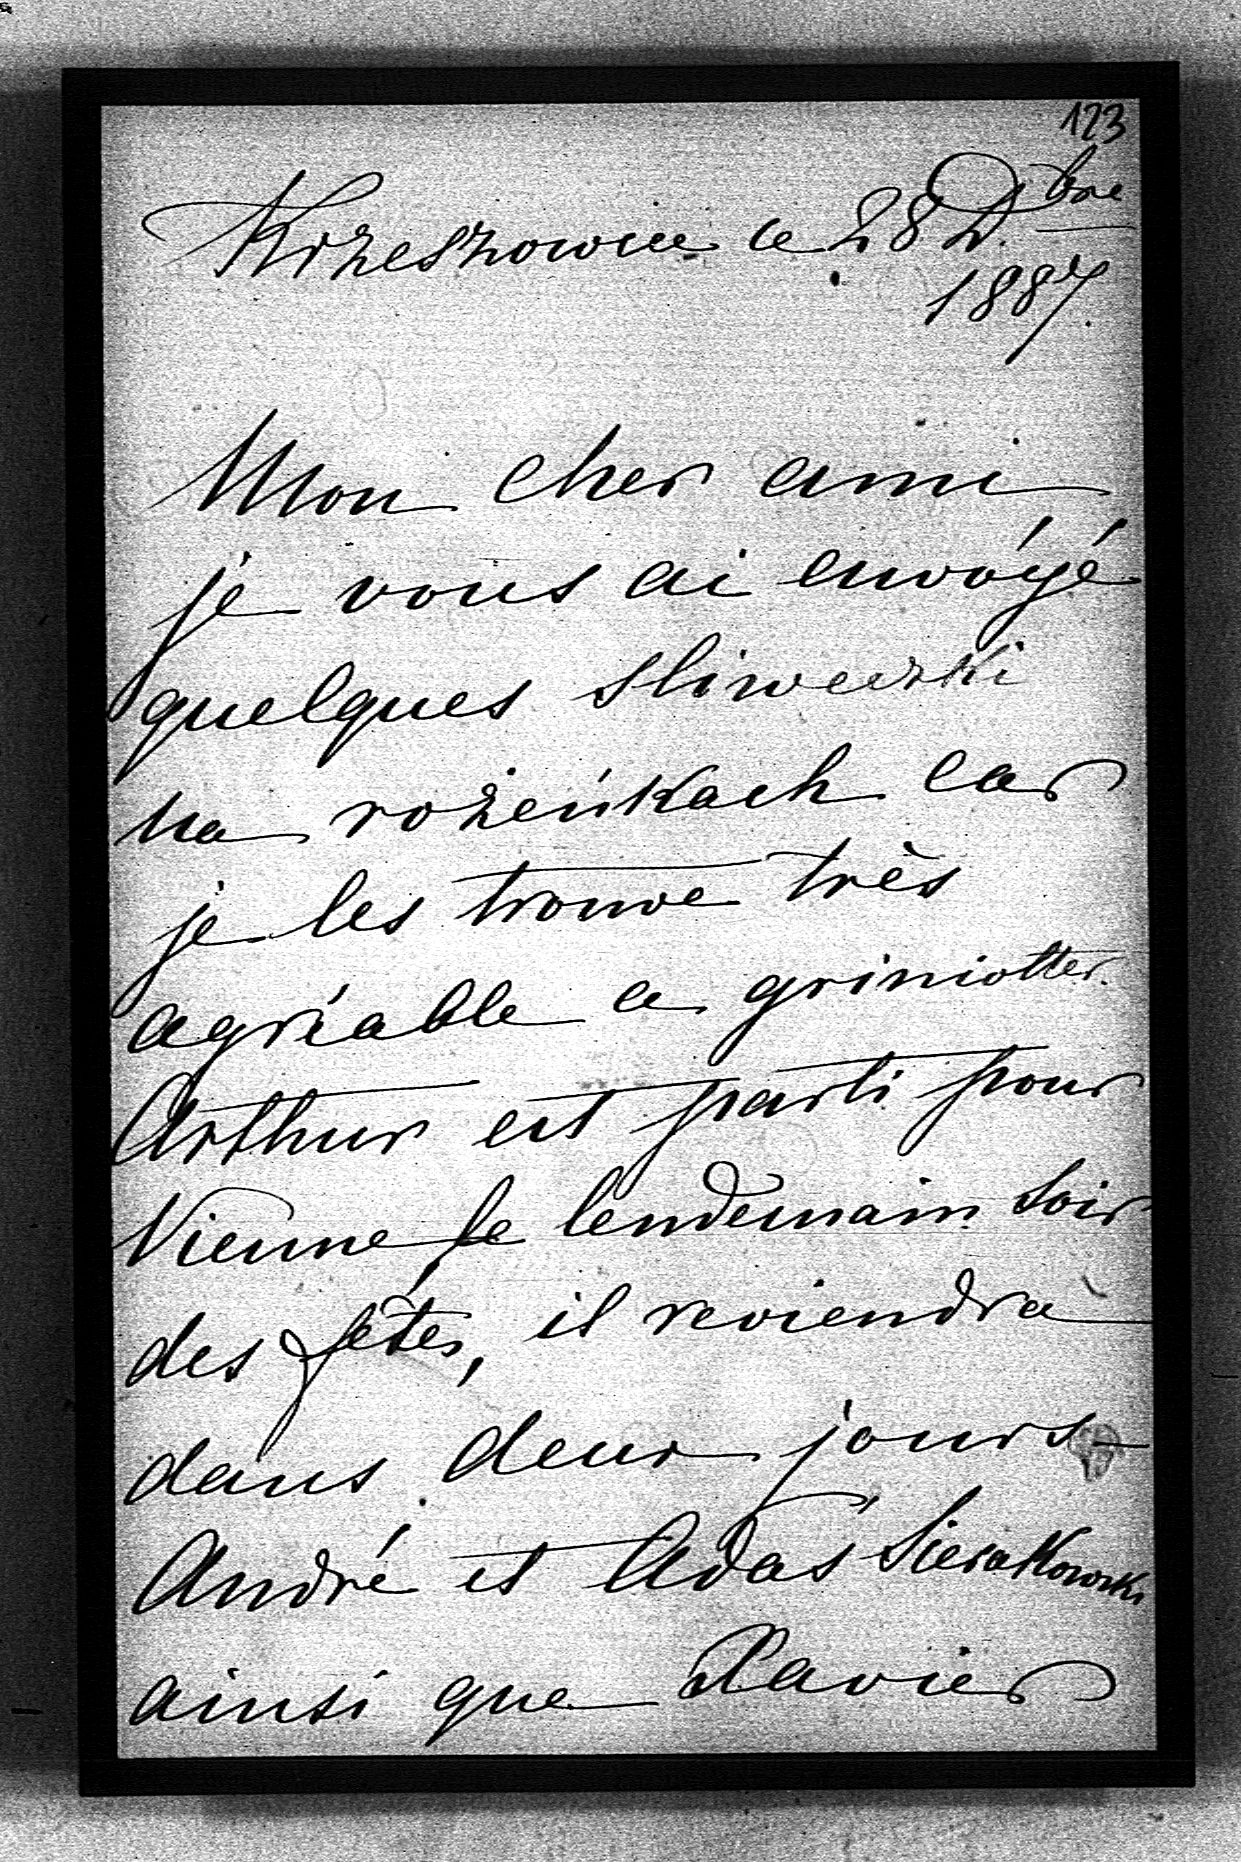 123
Krzeszowice le 28 D.bre
1887.
Mon cher ami
je vous ai envoýé
quelques sliweczki
na rożeńkach car
je les trouve très
agréable a griniotter.
Arthur est parti pour
Vienne le lendemain soir
des fêtes, il reviendra
dans deux jours
André et Adaś Sierakowski
ainsi que Xavier